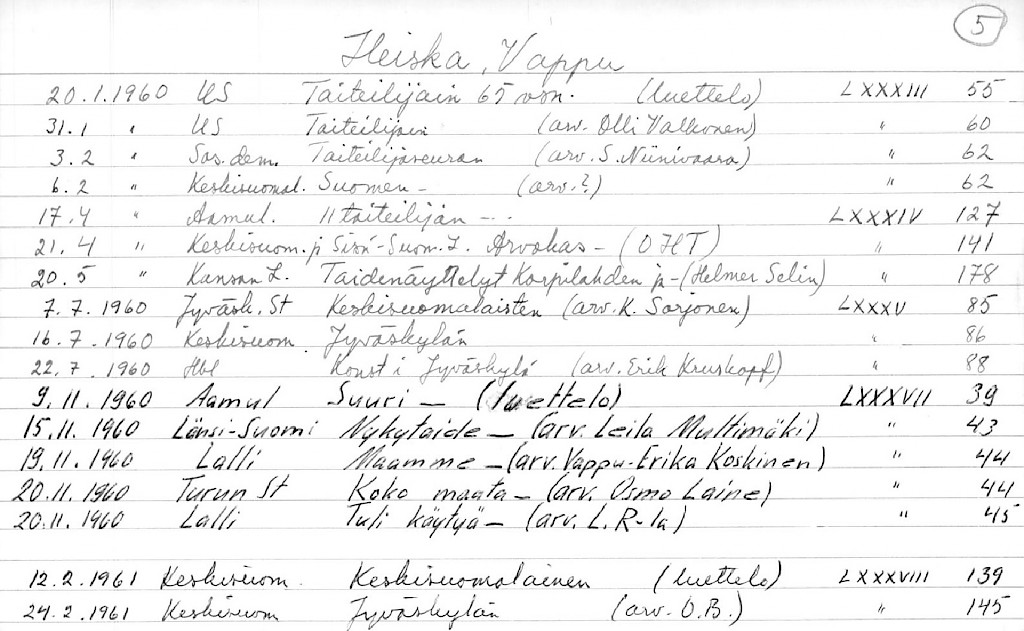 5
Heiska, Vappu
20.1.1960 US Taiteilijain 65 vsn. (luettelo) LXXXIII 55
31.1 " US Taiteilijain (arv. Olli Valkonen) " 60
3.2 " Sos.dem. Taiteilijaseuran (arv. S. Niinivaara) " 62
6.2 " Keskisuomal. Suomen - (arv.?) " 62
17.4 " Aamul. 11 taiteilijan - - - LXXXIV 127
21.4 " Keskisuom. ja Sisä-Suom. L. Arvokas - (OHT) " 141
20.5 " Kansan L. Taidenäyttelyt Korpilahden ja - (Helmer Selin) " 178
7.7.1960 Jyväsk. St Keskisuomalaisten (arv. K. Sorjonen) LXXXV 85
16.7.1960 Keskisuom. Jyväskylän " 86
22.7.1960 Hbl Konst i Jyväskylä (arv. Erik Kruskopf) " 88
9.11.1960 Aamul Suuri - (luettelo) LXXXVII 39
15.11.1960 Länsi-Suomi Nykytaide - (arv. Leila Multimäki) " 43
19.11.1960 Lalli Maamme - (arv. Vappu-Erika Koskinen) " 44
20.11.1960 Turun St Koko maata - (arv. Osmo Laine) " 44
20.11.1960 Lalli Tuli käytyä - (arv. L. R-la) " 45
12.2.1961 Keskisuom. Keskisuomalainen (luettelo) LXXXVIII 139
24.2.1961 Keskisuom Jyväskylän (arv. O.B.) " 145